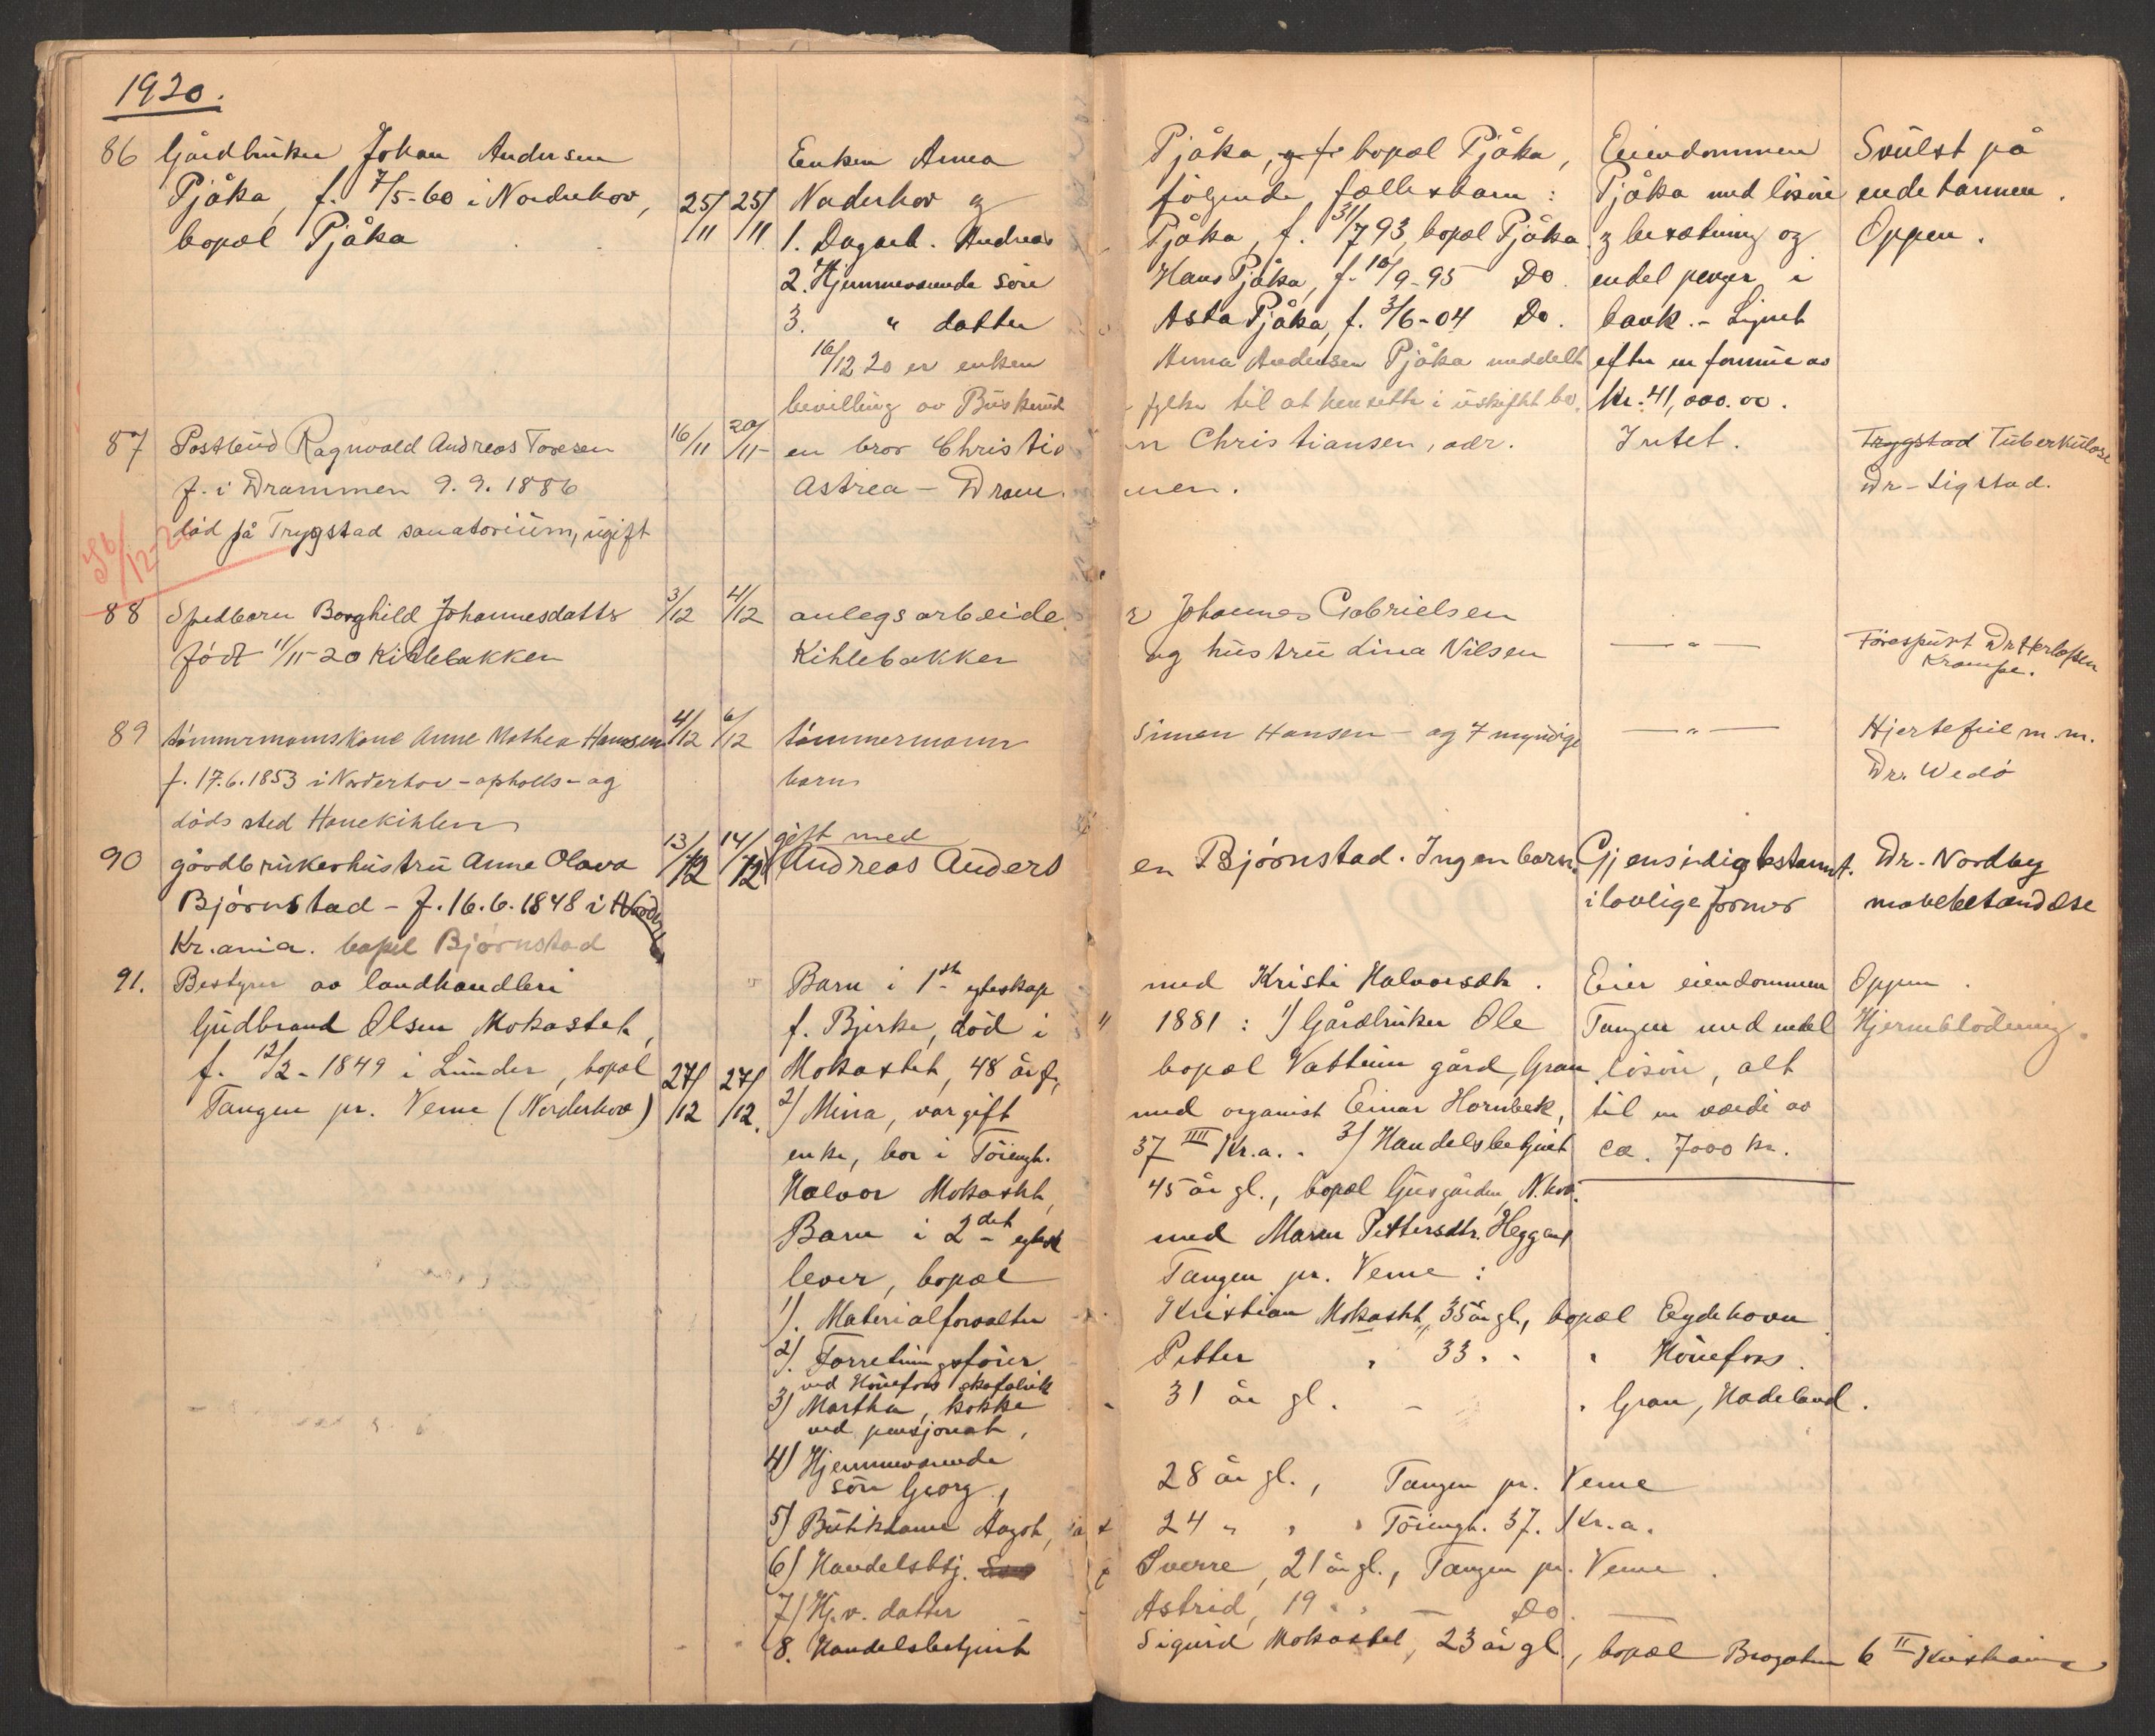 1920.
86 Gårdbruker Johan Andersen
Pjåka, f. 7/5-60 i Norderhov,
bopæl Pjåka
25/11 25/11
Enken Anna Pjåka, bopæl Pjåka,
Norderhov og følgende fællesbarn:
1. Dagarb. Andreas Pjåka, f. 31/7 93, bopæl Pjåka
2. Hjemmeværende søn Hans Pjåka, f. 10/9-95 Do
3. " datter Asta Pjåka, f. 3/6-04 Do.
16/12 20 er enken Anna Andersen Pjåka meddelt
bevilling av Buskerud fylke til at hensitte i uskiftet bo.
Eiendommen
Pjåka med løsøre
og besætning og
endel penger i
bank. - Lignet
efter en formue av
Kr. 41,000.00.
Svulst på
endetarmen.
Oppen.
87 Postbud Ragnvald Andreas Toresen
f. i Drammen 9.9.1886
død på Trygstad sanatorium, ugift
16/11 20/11
en bror Christian Christiansen, adr.
Astrea - Drammen.
Intet.
Trygstad Tuberkulose
Dr. Sigstad.
88 Spedbarn Borghild Johannesdatter
født 11/11-20 Kihlebakken
3/12 4/12
anlegsarbeider Johannes Gabrielsen
Kihlebakken og hustru Lina Nilsen
— " —
Forespurt Dr Herlofsen
Krampe.
89 tømmermannskone Anne Mathea Hansen
f. 17.6.1853 i Norderhov - opholls- og
døds sted Hønekihlen
4/12 6/12
tømmermann Simen Hansen - og 7 myndige
barn
— " —
Hjertefeil m.m.
Dr. Wedø
90 gårdbrukerhustru Anne Olava
Bjørnstad - f. 16.6.1848 i
Kr.ania. bopel Bjørnstad
13/12 14/12
gift med
Andreas Andersen Bjørnstad. Ingen barn.
Gjensidig testamt.
i lovlige former
Dr. Nordby
mavebetændelse
91. Bestyrer av landhandleri
Gudbrand Olsen Mokastet,
f. 12/2-1849 i Lunder, bopæl
Tangen pr. Veme (Norderhov)
27/12 27/12.
Barn i 1ste egteskap med Kristi Halvorsdtr.
f. Bjerke, død i 1881: 1) Gårdbruker Ole
Mokastet, 48 år gl, bopæl Vattum gård, Gran
2) Mina, var gift med organist Einar Hornbek,
enke, bor i Töiengt. 37 IIII Kr.a. 3) Handelsbetjent
Halvor Mokastet, 45 år gl., bopæl Gusgården, N.hov.
Barn i 2det egtesk med Maren Pettersdtr. Heggen,
lever, bopæl Tangen pr. Veme:
1). Materialforvalter Kristian Mokastet, 35 år gl, bopæl Eydehavn
2). Forretningsfører Petter " 33 " " " Hønefoss.
ved Hønefoss skofabrik
3) Martha, kokke 31 år gl. - " Gran, Hadeland.
ved pensjonat,
4) Hjemmeværende
søn Georg, 28 år gl., Tangen pr. Veme
5) Butikdame Aagot, 24 " " " Töiengt. 37. Kr.a.
6) Handelsbtj. Sverre, 21 år gl., Tangen pr. Veme.
7) Hj.v. datter Astrid, 19 " " — Do. —
8. Handelsbetjent Sigurd Mokastet, 23 år gl., bopæl Brogaten 6 II Kristiania
Eier eiendommen
Tangen med endel
løsøre, alt
til en værdi av
ca. 7000 kr.
Oppen.
Hjerneblødning.